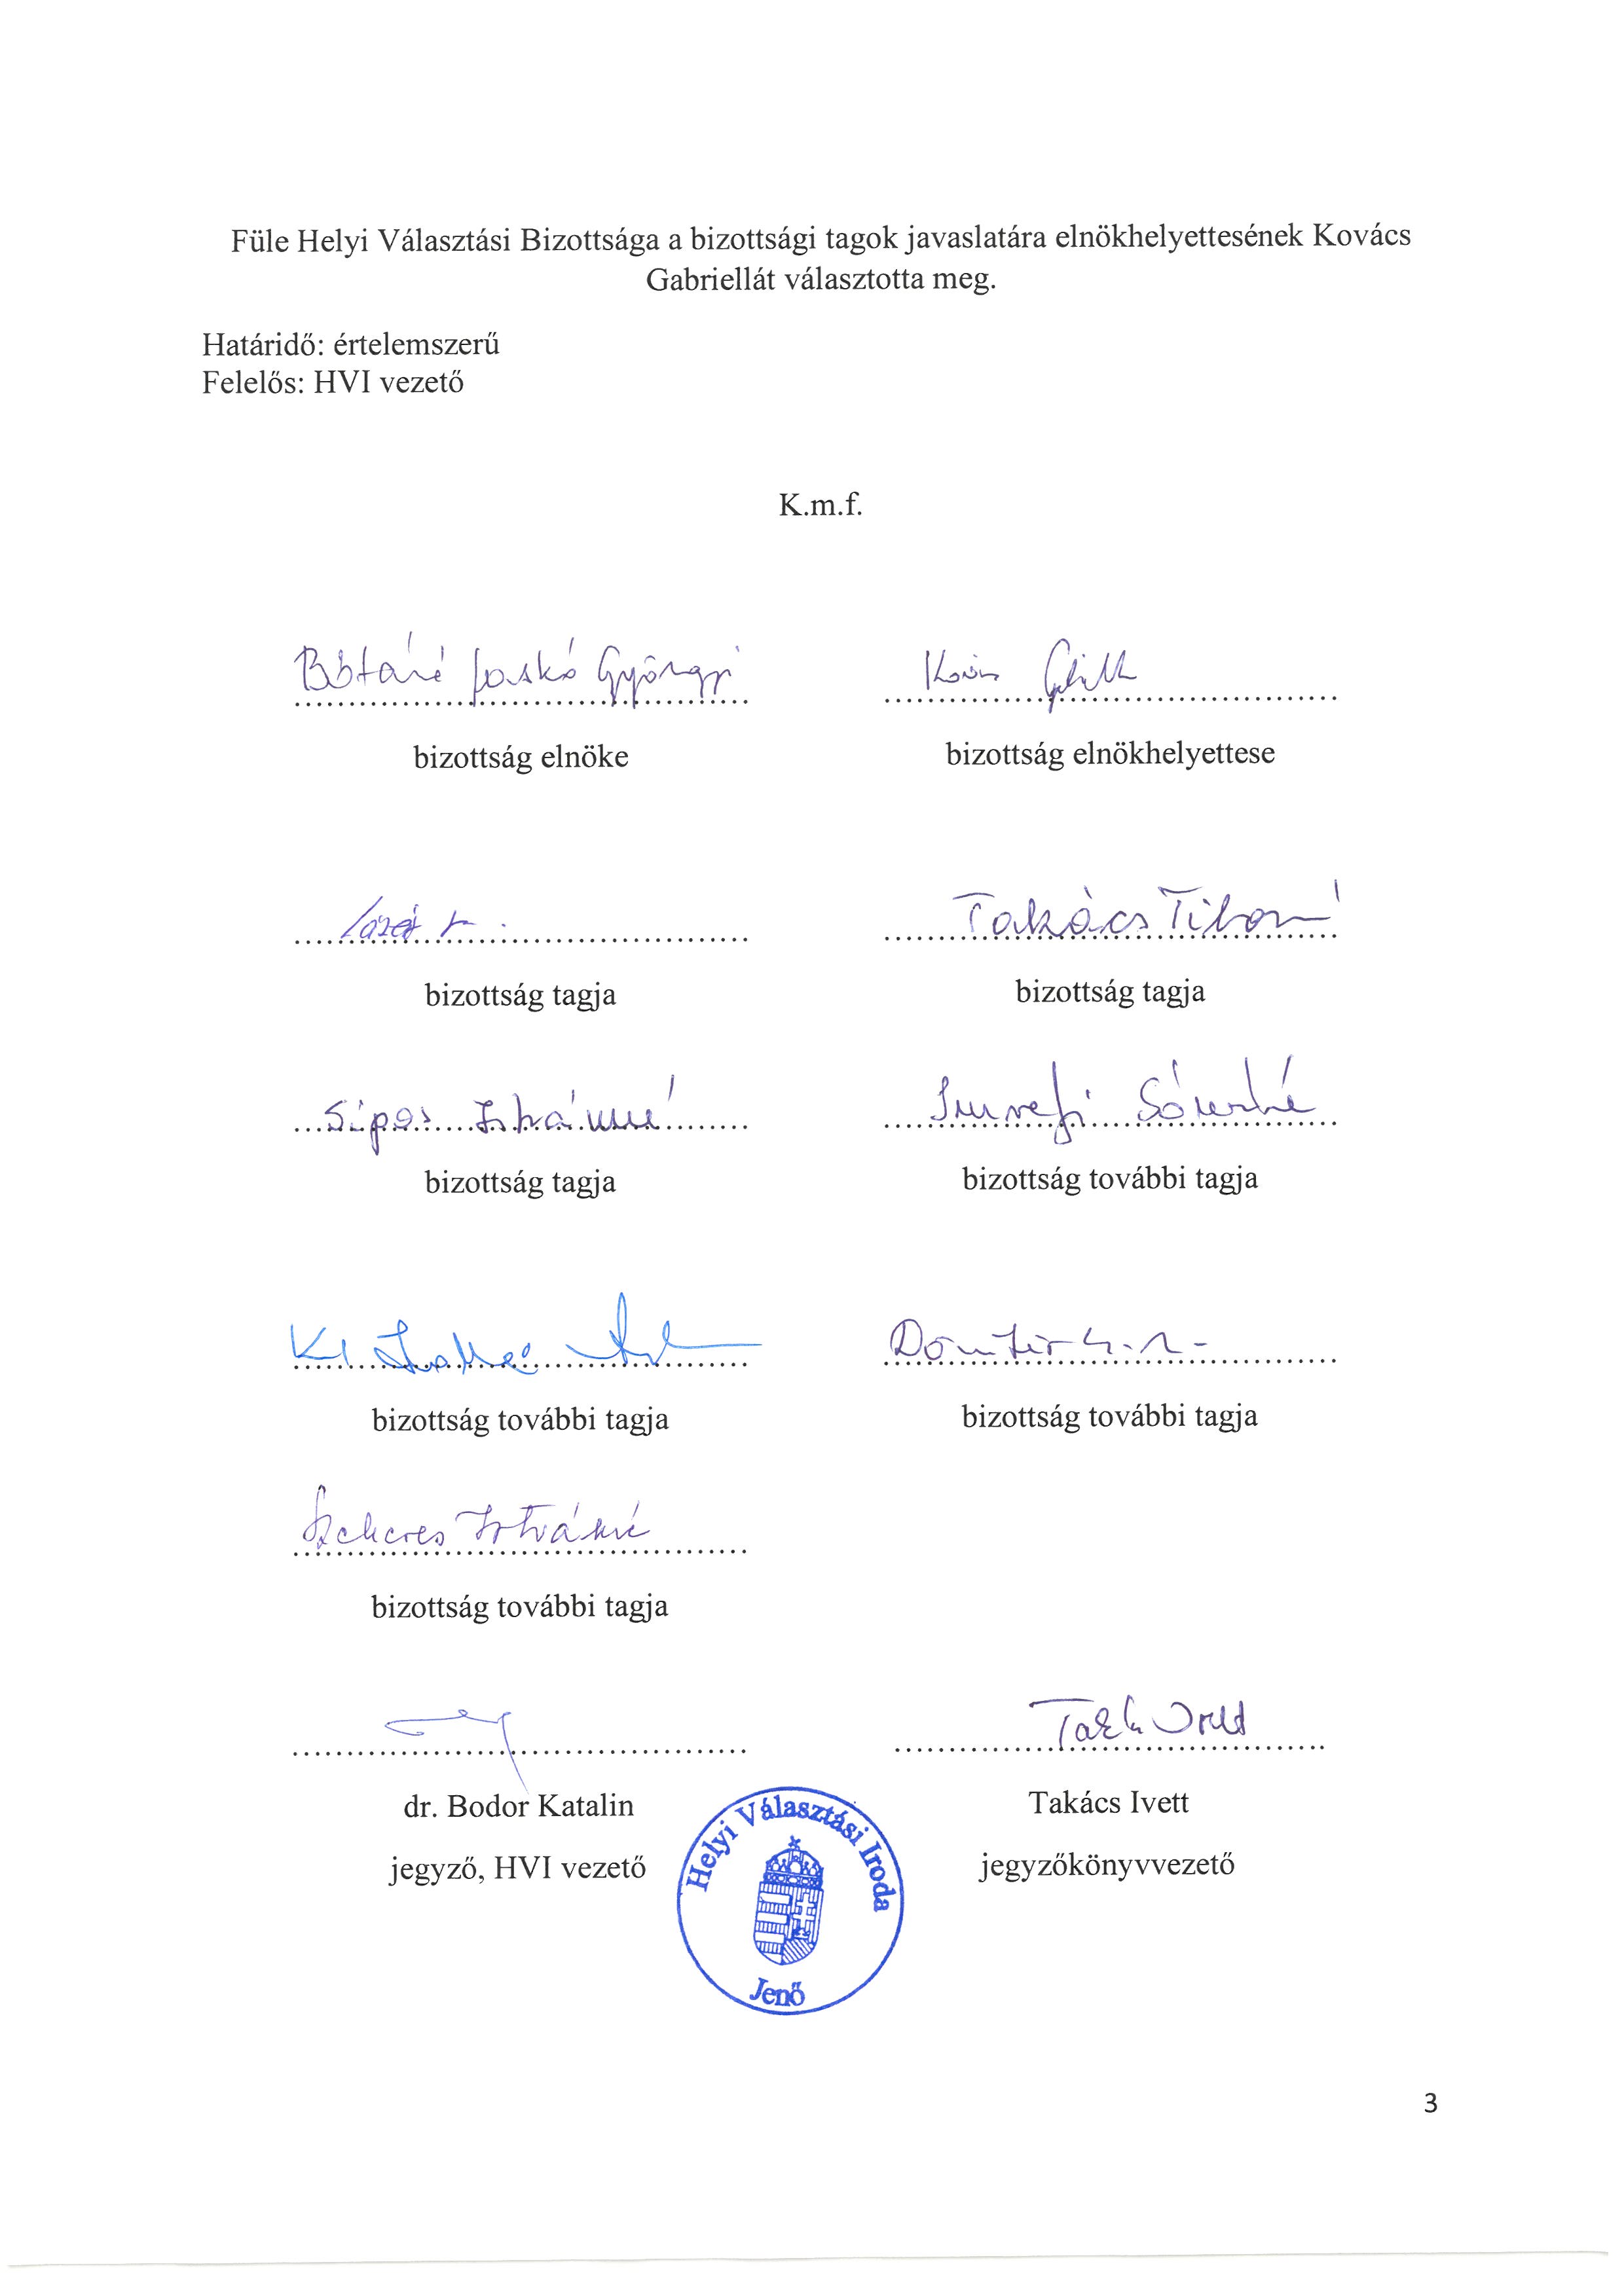 Füle Helyi Választási Bizottsága a bizottsági tagok javaslatára elnökhelyettesének Kovács
Gabriellát választotta meg.
Határidő: értelemszerű
Felelős: HVI vezető
K.m.f.
Györgyi
bizottság elnöke bizottság elnökhelyettese
Takács Tiborné
bizottság tagja bizottság tagja
Sipos Istvánné
bizottság tagja bizottság további tagja
bizottság további tagja bizottság további tagja
Szekeres Istvánné
bizottság további tagja
dr. Bodor Katalin Takács Ivett
jegyző, HVI vezető jegyzőkönyvvezető
Helyi Választási Iroda
Jenő
3